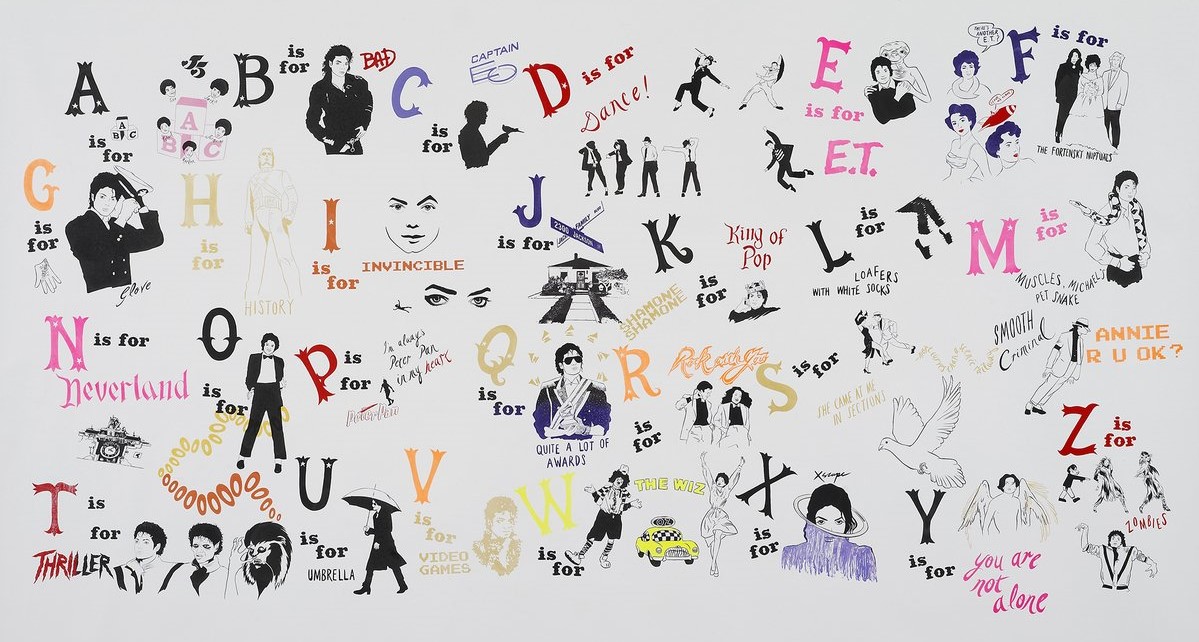 A
is
for
A
B C
J5
A
B C
B
is
for
BAD
C
is
for
CAPTAIN
EO
D
is for
Dance!
E
is for
E.T.
THERE'S
ANOTHER
(E.T.?)
F
is for
THE FORTENSKY NUPTUALS
G
is
for
Glove
H
is
for
HISTORY
I
is
for
INVINCIBLE
J
is for
2300 JACKSON
K
is
for
King of
Pop
SHAMONE
SHAMONE
L
is
for
LOAFERS
WITH WHITE SOCKS
M
is
for
MUSCLES, MICHAEL'S
PET SNAKE
N
is for
Neverland
O
is
for
P
is
for
I'm always
Peter Pan
in my heart
Peter Pan
Q
is
for
QUITE A LOT OF
AWARDS
R
is
for
Rock with You
S
is for
SHE CAME AT ME
IN SECTIONS
SMOOTH
Criminal
ANNIE
R U OK?
T
is
for
THRILLER
U
is
for
UMBRELLA
V
is
for
VIDEO
GAMES
W
is
for
THE WIZ
X
is
for
Xscape
Y
is
for
you are
not
alone
Z
is
for
ZOMBIES